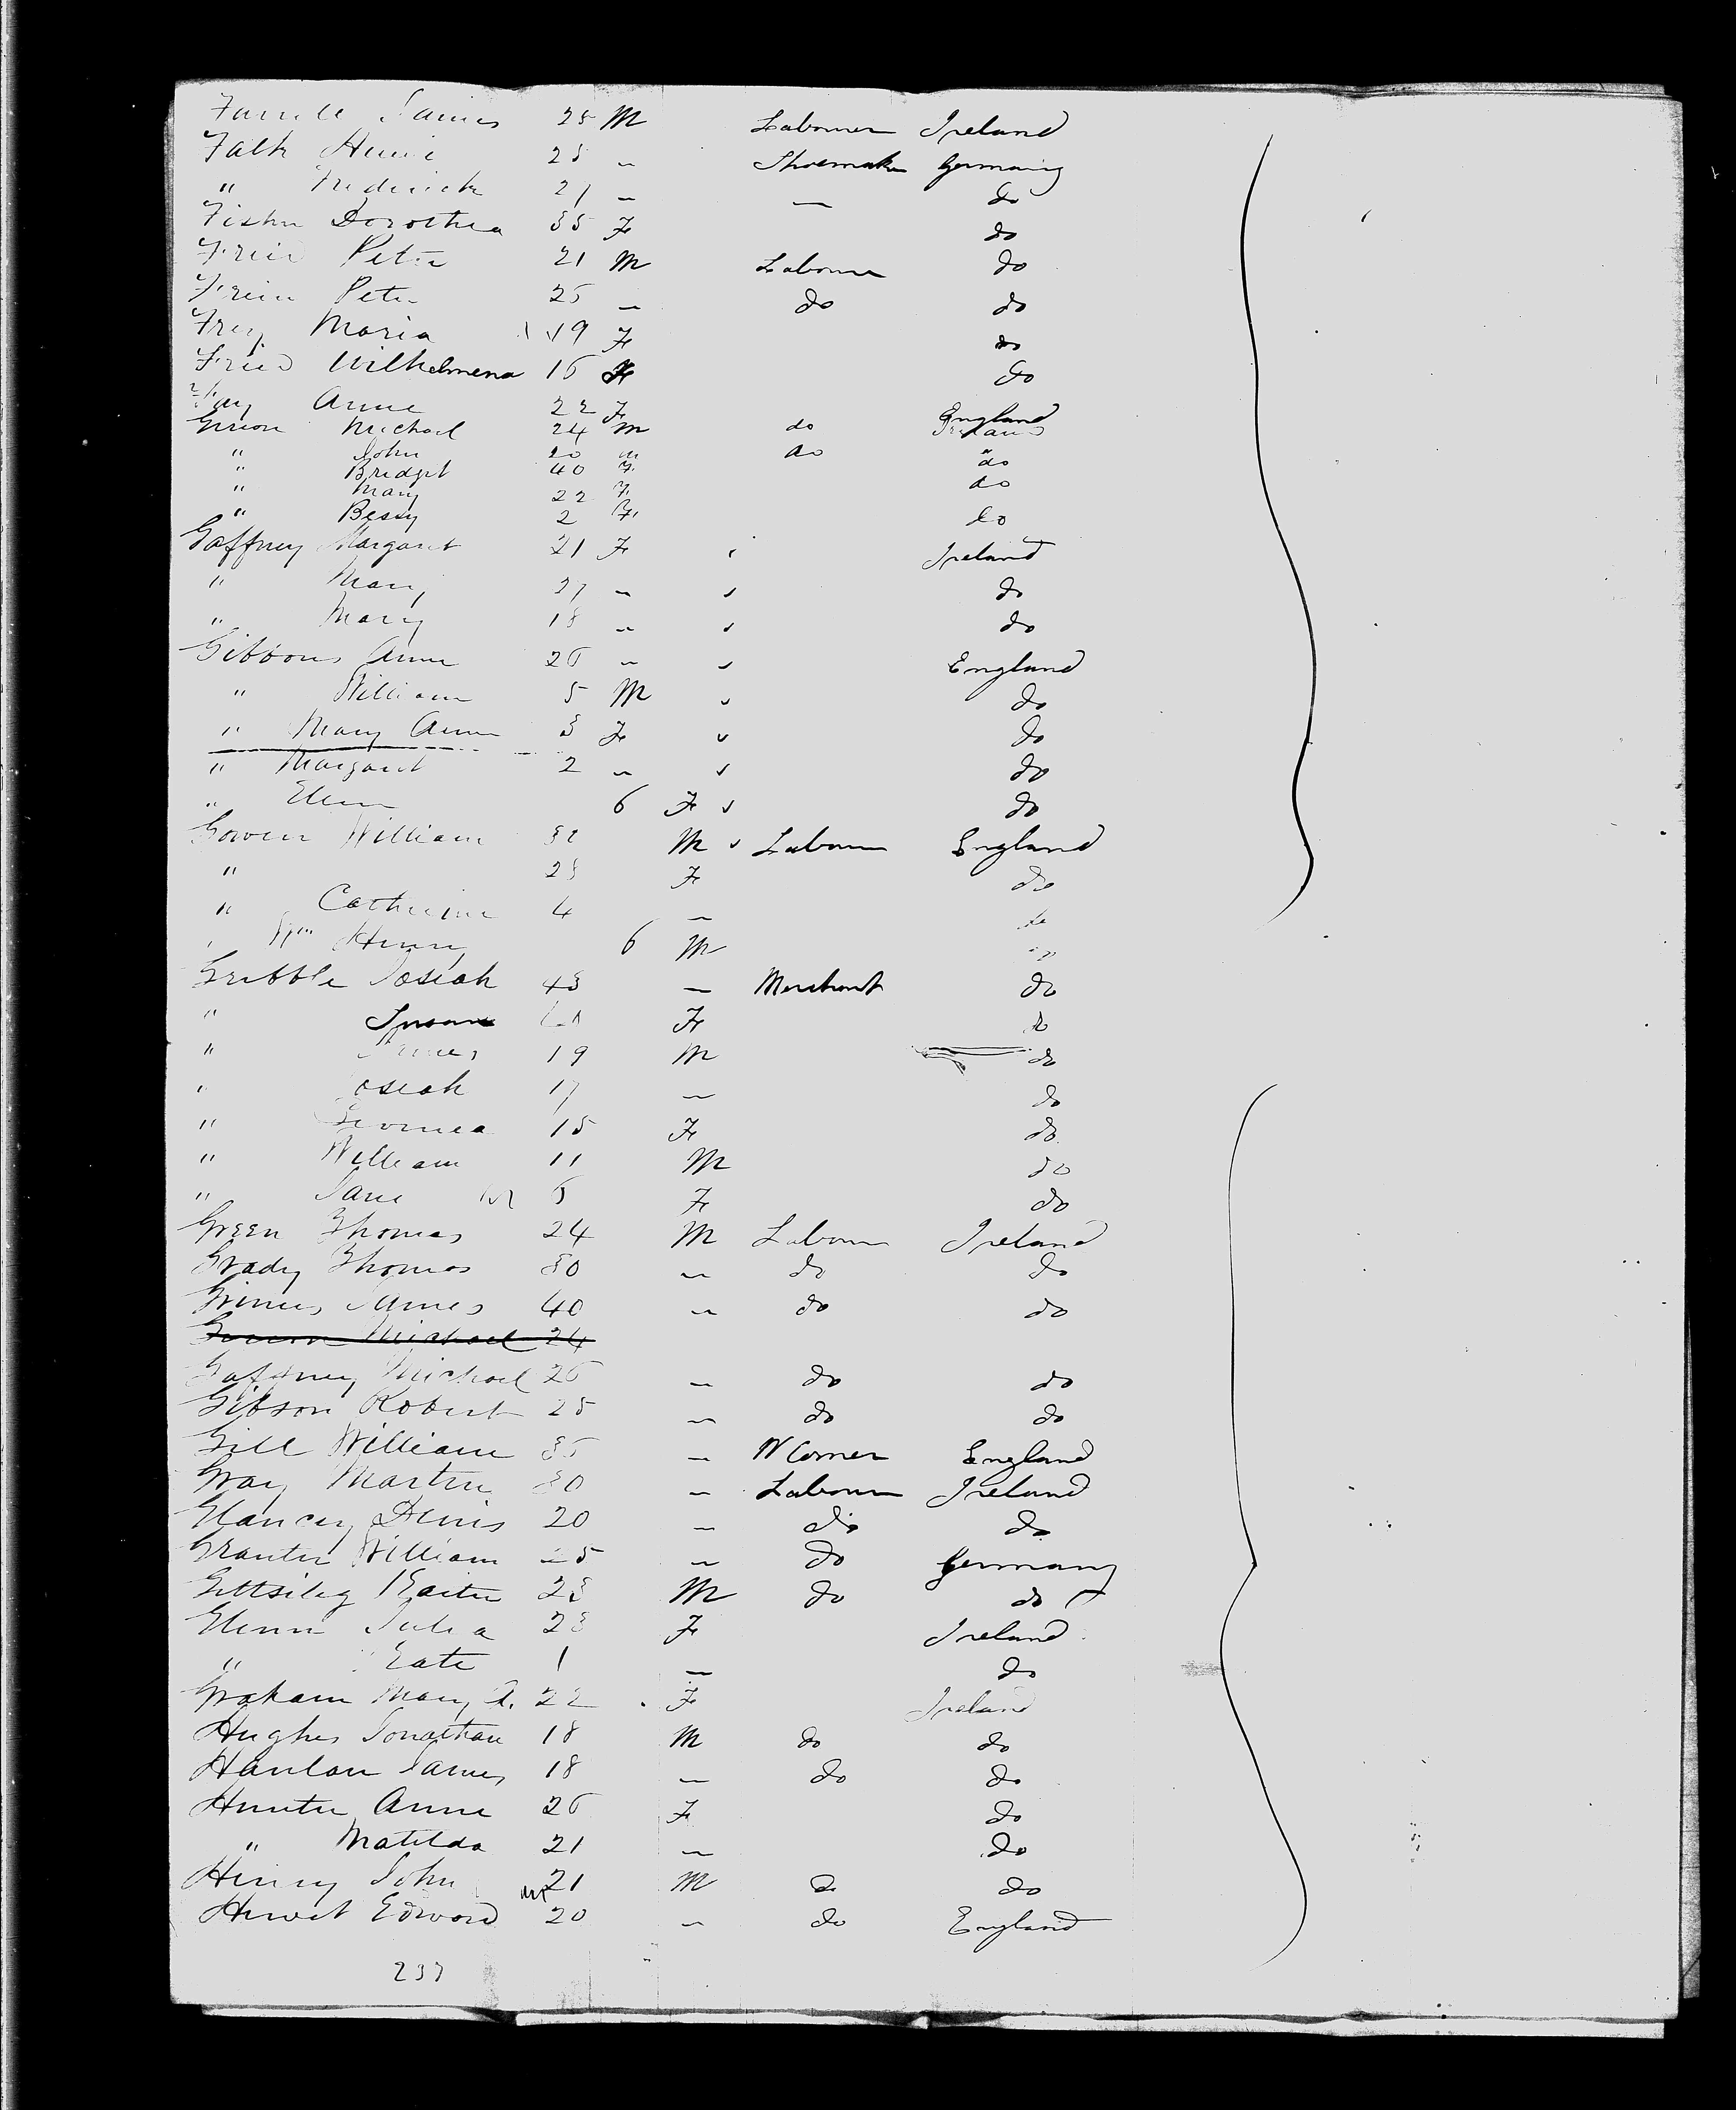 James 25 M Labourer Ireland
Falk 25 " Shoemaker Germany
" Frederick 21 " — do
Fisher Dorothea 35 F do
Fried Peter 21 M Labourer do
Peter 25 " do do
Frey Maria 19 F do
Fried Wilhelmena 16 F do
Anne 22 F England
Michael 24 M do Ireland
" John 20 m do do
" Bridget 40 F do
" Mary 22 F do
" Bessy 2 F do
Gaffney Margaret 21 F Ireland
" Mary 27 " do
" Mary 18 " do
Gibbons Anne 26 " England
" William 5 M do
" Mary Anne 3 F do
" Margaret 2 " do
" Ellen 6 F do
Gowen William 32 M Labourer England
" 28 F do
" Catherine 4 " do
" Wm Henry 6 M do
Gribble Josiah 43 " Merchant do
" Susan F do
" James 19 M do
" Josiah 17 " do
" 15 F do
" William 11 M do
" Jane 6 F do
Green Thomas 24 M Labourer Ireland
Grady Thomas 30 " do do
Grimes James 40 " do do
Michael 24
Gaffney Michael 26 " do do
Gibson Robert 25 " do do
Gill William 36 " England
Gray Martin 30 " Labourer Ireland
Glancey Denis 20 " do do
William 25 " do Germany
23 M do do
Glenn Julia 28 F Ireland
" Kate 1 " do
Graham Mary A. 22 F Ireland
Hughes Jonathan 18 M do do
Hanlon James 18 " do do
Hunter Anne 26 F do
" Matilda 21 " do
Henry John 21 M do do
Hewet Edward 20 " do England
237